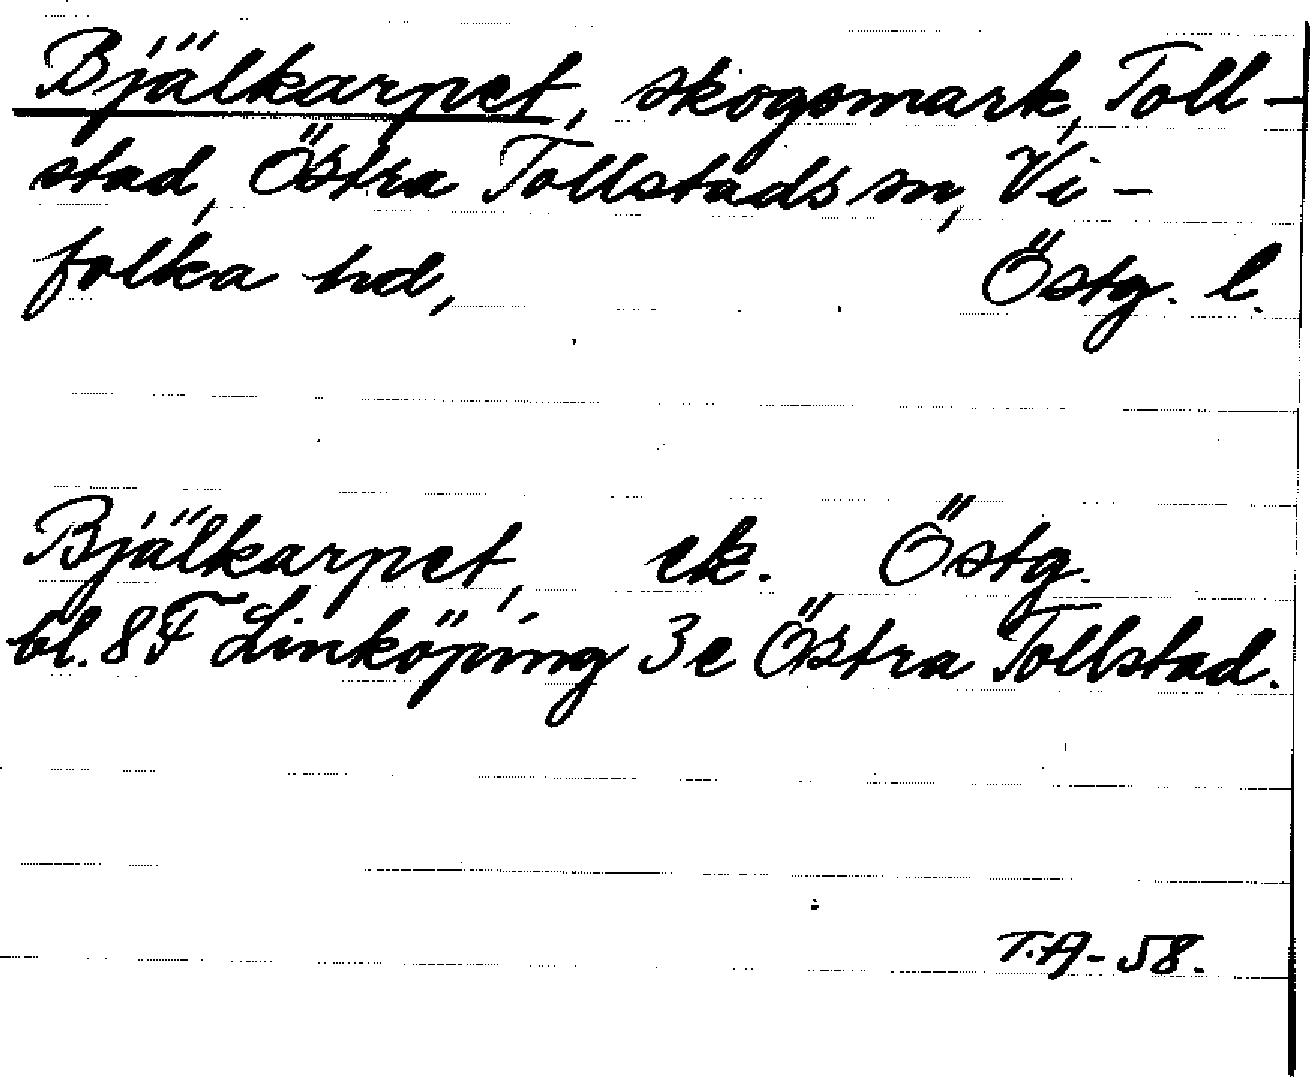 Bjälkarpet, skogsmark, Toll-
stad, Östra Tollstads sn, Vi-
folka hd, Östg. l.
Bjälkarpet, ek. Östg.
bl. 8F Linköping 3e Östra Tollstad.
T.A-58.